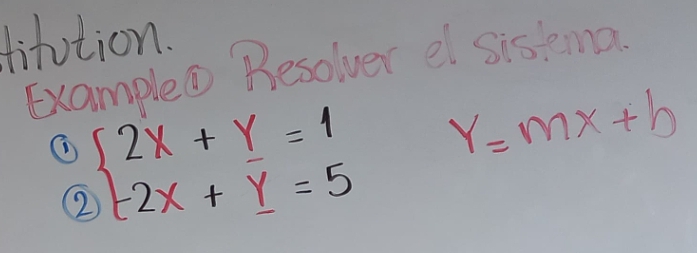 titution.
Example① Resolver el sistema.
① { 2X + Y = 1
② -2X + Y = 5
Y = mx + b